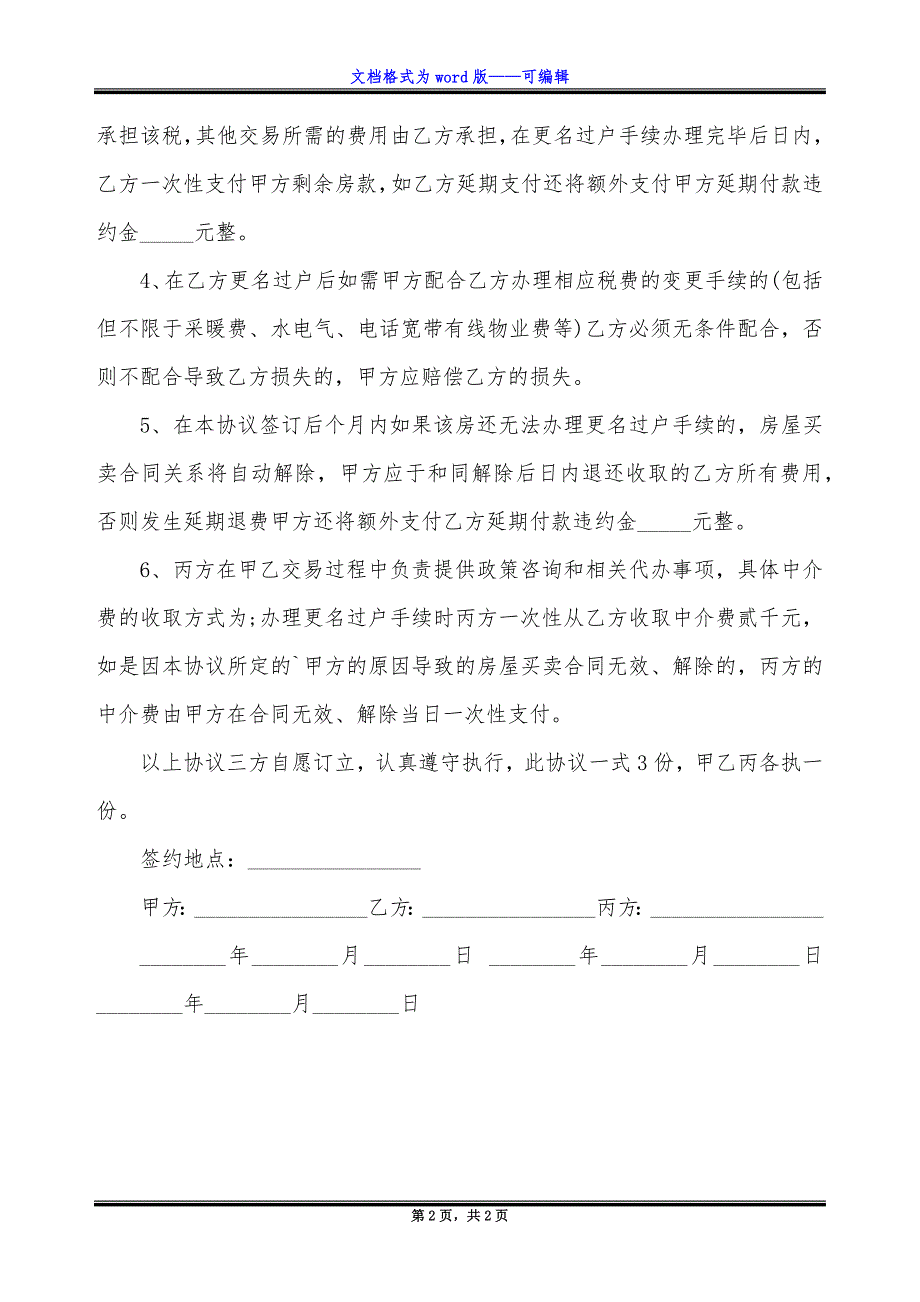 文档格式为 word 版——可编辑
承担该税,其他交易所需的费用由乙方承担,在更名过户手续办理完毕后日内,
乙方一次性支付甲方剩余房款,如乙方延期支付还将额外支付甲方延期付款违
约金_____元整。
4、在乙方更名过户后如需甲方配合乙方办理相应税费的变更手续的(包括
但不限于采暖费、水电气、电话宽带有线物业费等)乙方必须无条件配合，否
则不配合导致乙方损失的，甲方应赔偿乙方的损失。
5、在本协议签订后个月内如果该房还无法办理更名过户手续的，房屋买
卖合同关系将自动解除，甲方应于和同解除后日内退还收取的乙方所有费用，
否则发生延期退费甲方还将额外支付乙方延期付款违约金_____元整。
6、丙方在甲乙交易过程中负责提供政策咨询和相关代办事项，具体中介
费的收取方式为;办理更名过户手续时丙方一次性从乙方收取中介费贰千元，
如是因本协议所定的`甲方的原因导致的房屋买卖合同无效、解除的，丙方的
中介费由甲方在合同无效、解除当日一次性支付。
以上协议三方自愿订立，认真遵守执行，此协议一式 3 份，甲乙丙各执一
份。
签约地点：________________
甲方：________________乙方：________________丙方：________________
________年________月________日 ________年________月________日
________年________月________日
第 2 页，共 2 页